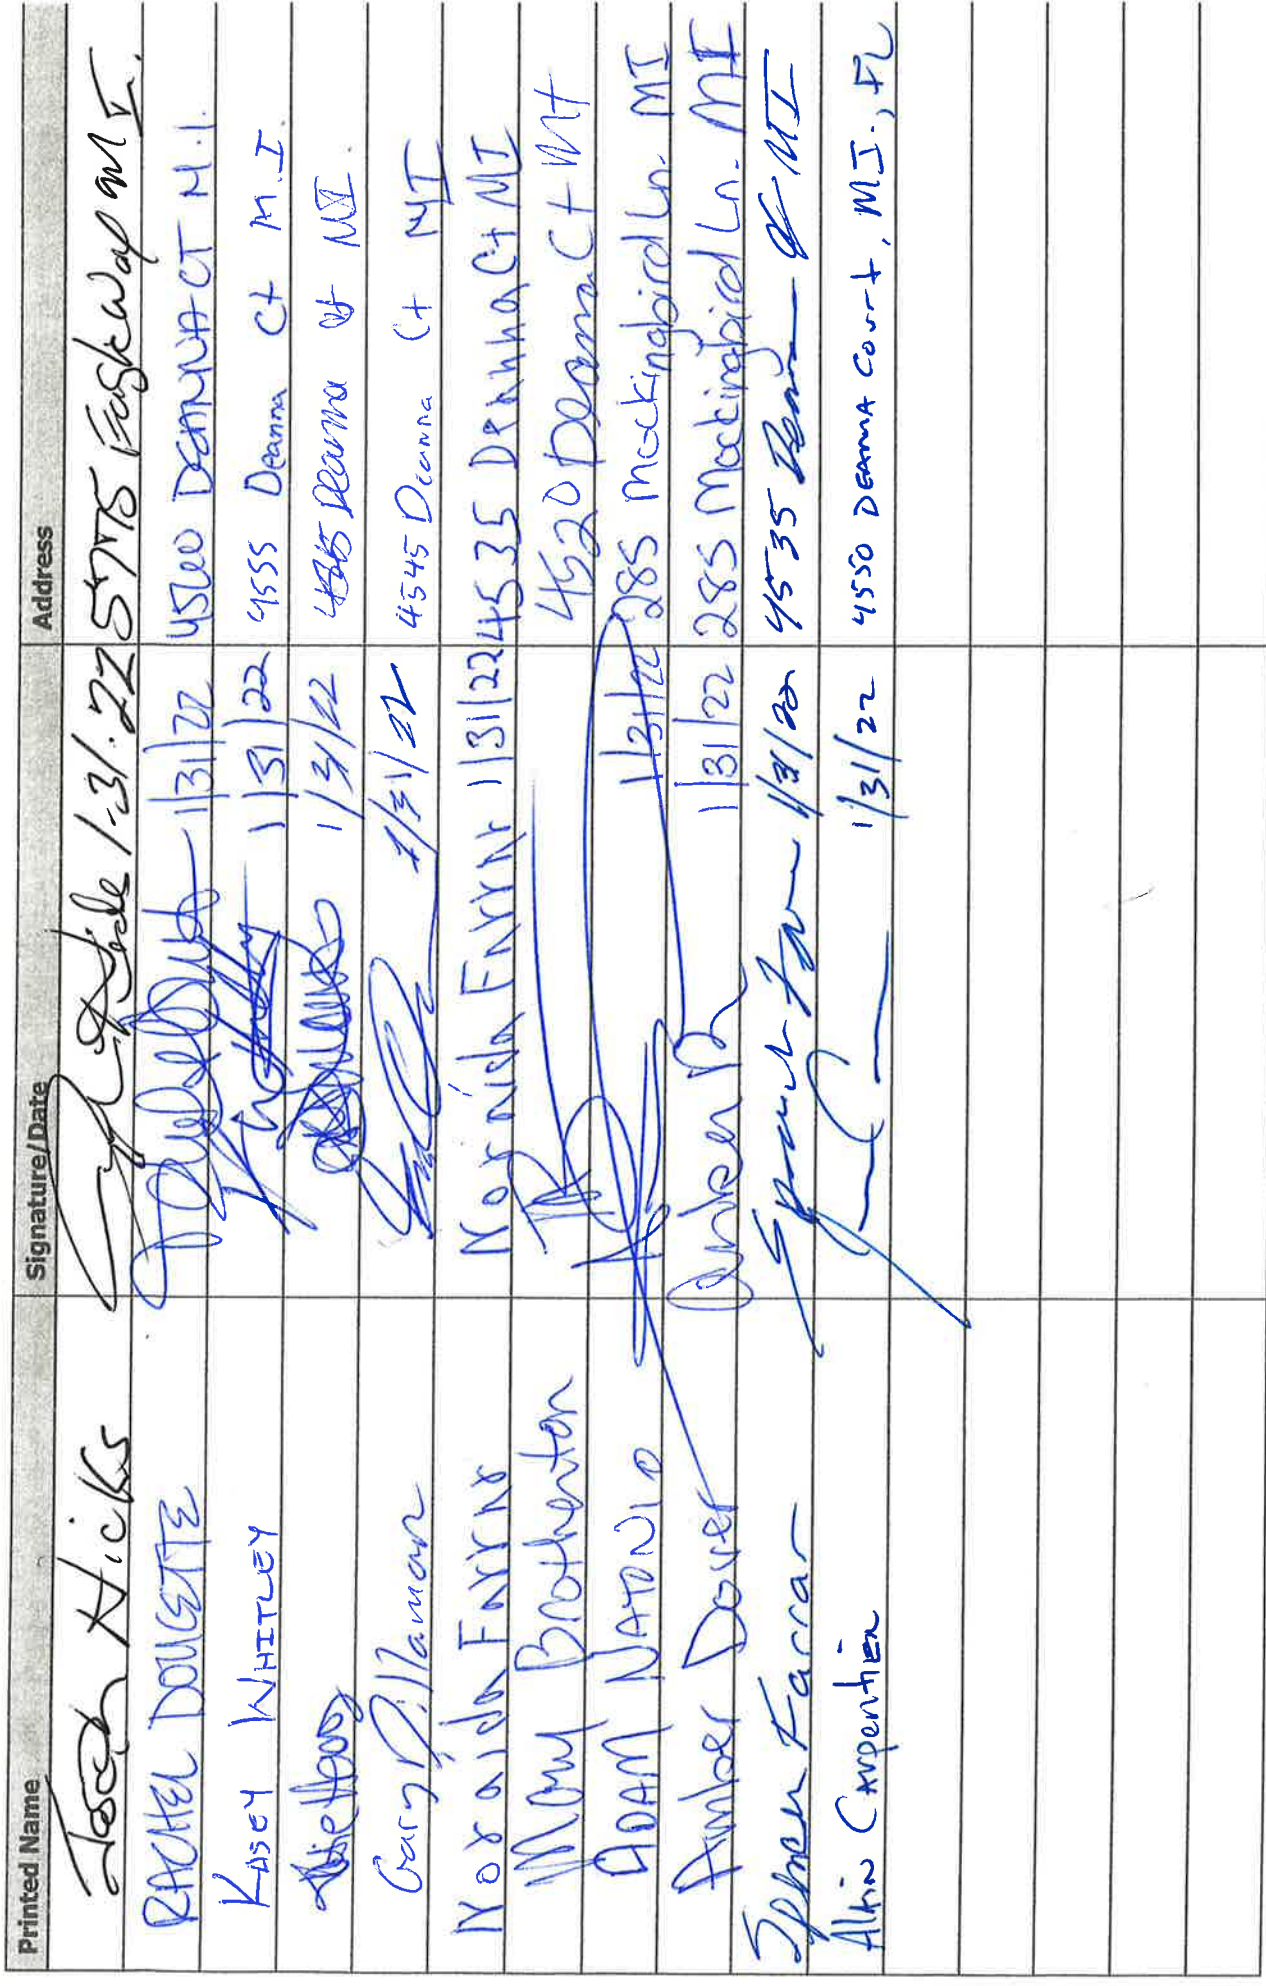 Printed Name Signature/Date Address
Joseph Hicks 1.31.22 5775 MI.
RACHEL DOUCETTE 1/31/22 4560 DEANNA CT M.I.
KASEY WHITLEY 1/31/22 4555 Deanna Ct M.I.
1/31/22 Deanna Ct MI.
Gary Dillaman 1/31/22 4545 Deanna Ct MI
Noraida Farrar Noraida Farrar 1/31/22 4535 Deanna Ct MI
Mary Brotherton 4520 Deanna Ct MI
ADAM 1/31/22 285 Mockingbird Ln. MI
Amber Dover Amber D 1/31/22 285 Mockingbird Ln. MI
Spencer Farrar Spencer Farrar 1/31/22 4535 Deanna Ct MI
Carpentier 1/31/22 4550 DEANNA Court, M.I., FL